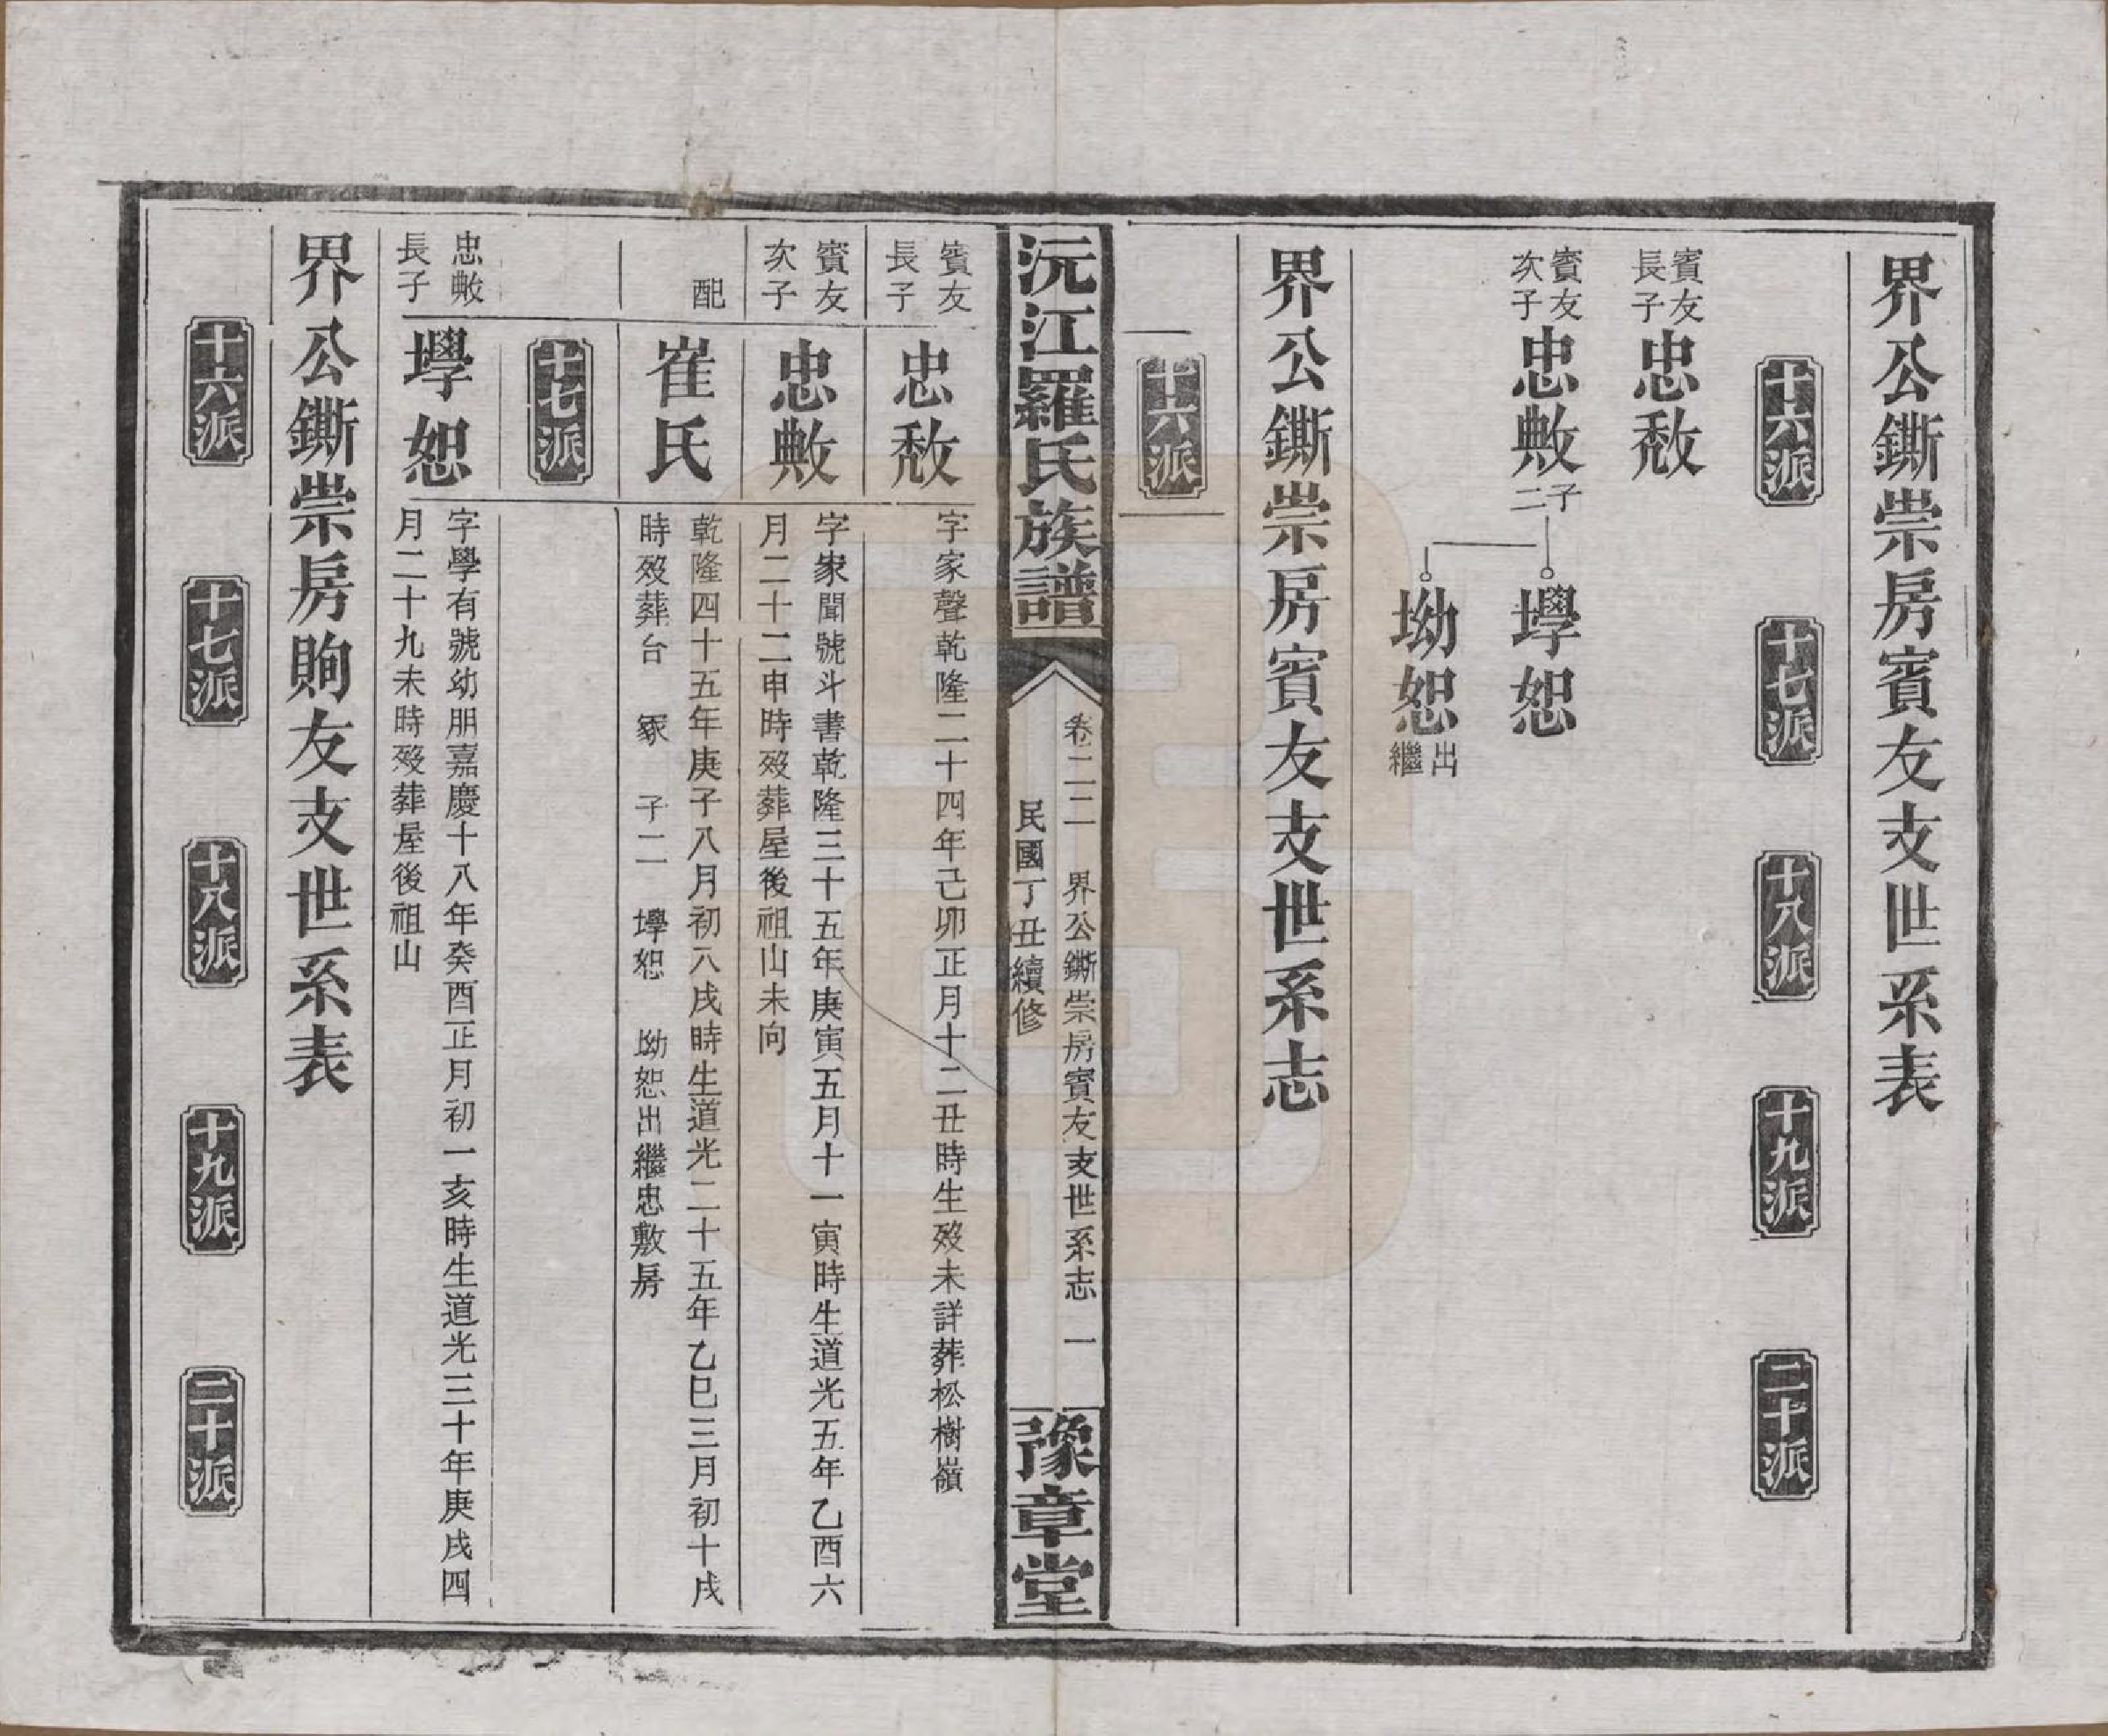 界公鐁崇房賓友支世系表
十六派
十七派
十八派
十九派
二十派
賓友長子 忠敄
賓友次子 忠敟 子二
壆恕
坳恕 出繼
界公鐁崇房賓友支世系志
十六派
沅江羅氏族譜
卷二二 界公鐁崇房賓友支世系志 一
民國丁丑續修
豫章堂
賓友長子 忠敄
字家聲乾隆二十四年己卯正月十二丑時生歿未詳葬松樹嶺
賓友次子 忠敟
字家聞號斗書乾隆三十五年庚寅五月十一寅時生道光五年乙酉六
月二十二申時歿葬屋後祖山未向
配 崔氏
乾隆四十五年庚子八月初六戌時生道光二十五年乙巳三月初十戌
時歿葬台 冢 子二 壆恕 坳恕出繼忠敷房
十七派
忠敟長子 壆恕
字學有號幼朋嘉慶十八年癸酉正月初一亥時生道光三十年庚戌四
月二十九未時歿葬屋後祖山
界公鐁崇房眴友支世系表
十六派
十七派
十八派
十九派
二十派